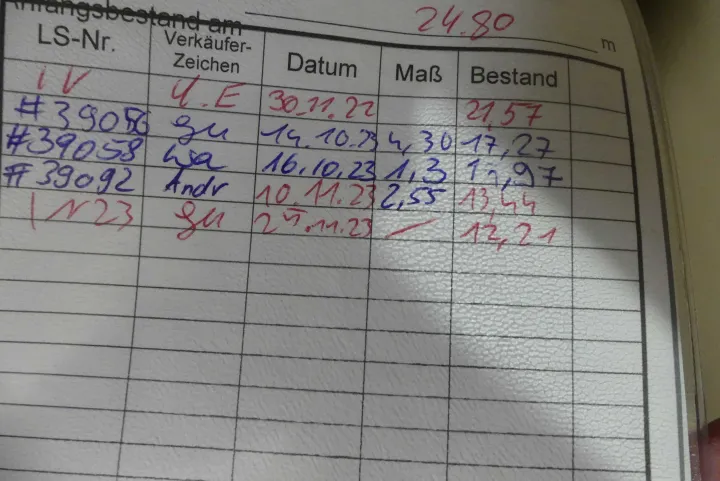 Anfangsbestand am 24.80 m
LS-Nr. Verkäufer-Zeichen Datum Maß Bestand
IV U.E 30.11.22 21,57
#39056 gu 14.10.23 4,30 17,27
#39058 Wa 16.10.23 1,3
#39092 Andr 10.11.23 2,55 13,44
IN23 gu .11.23 — 12,21